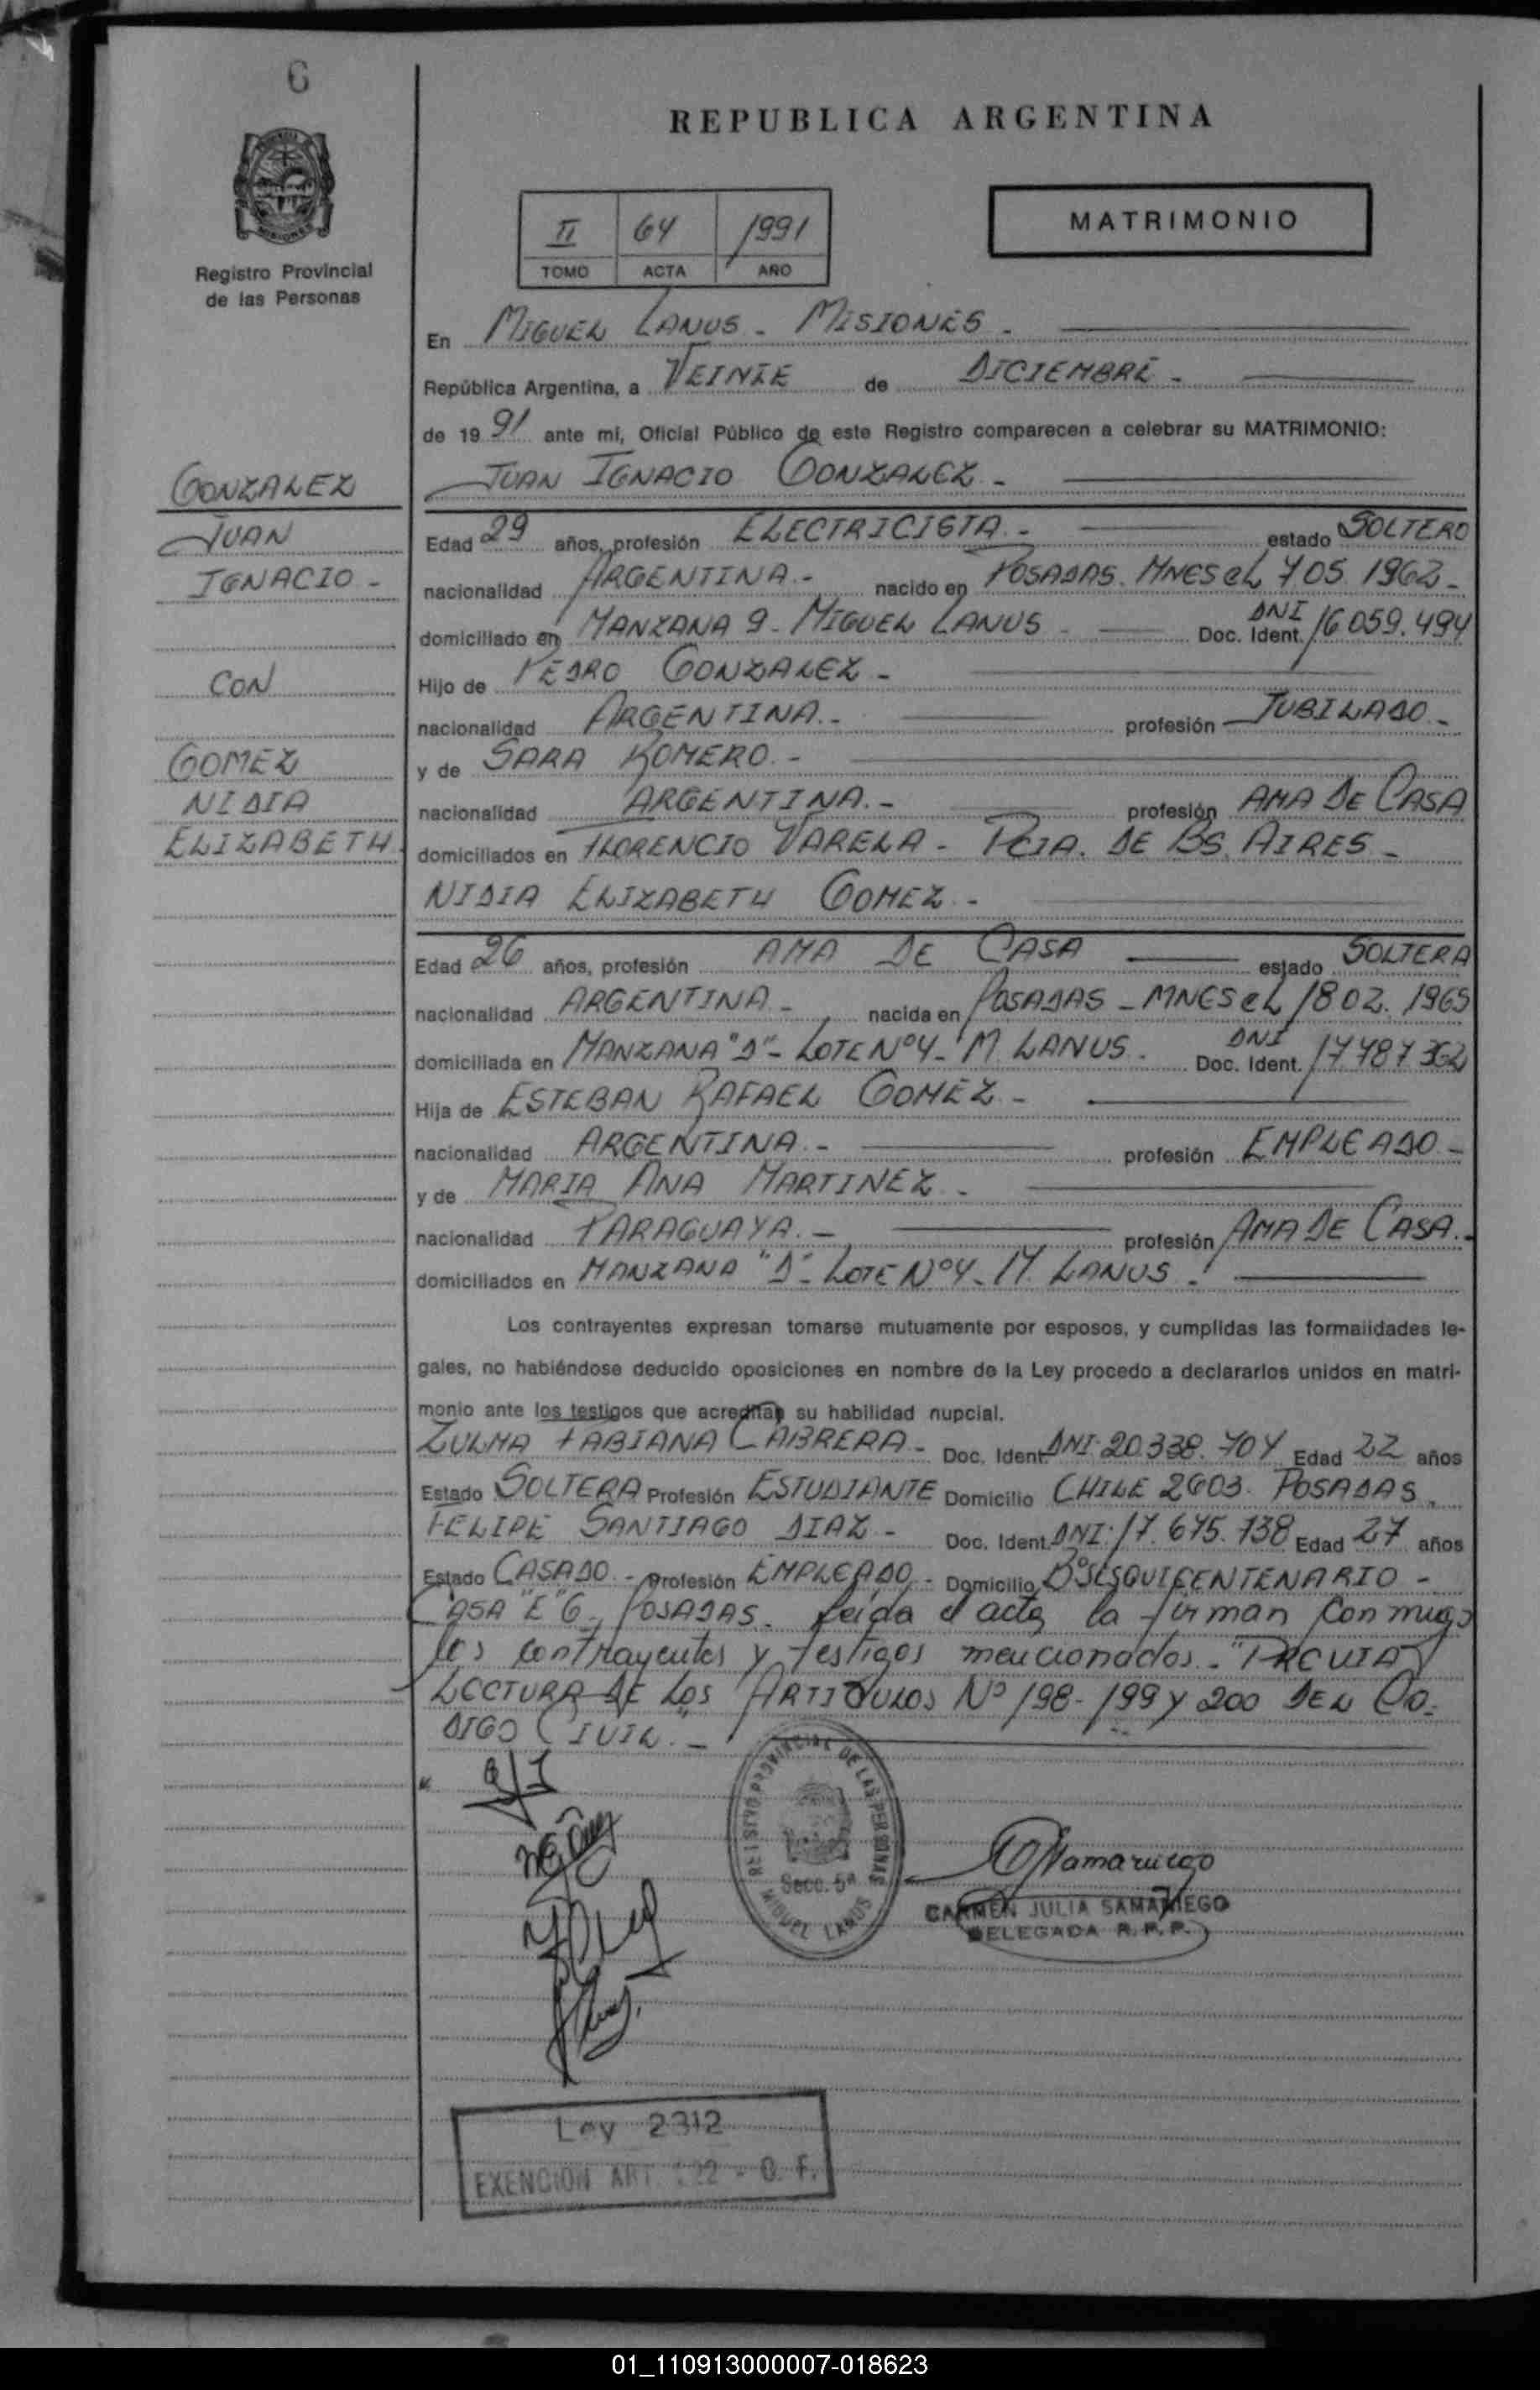 6
REPUBLICA ARGENTINA
MISIONES
Registro Provincial
de las Personas
II 64 1991
TOMO ACTA AÑO
MATRIMONIO
En MIGUEL LANUS - MISIONES -
República Argentina, a VEINTE de DICIEMBRE -
de 19 91 ante mí, Oficial Público de este Registro comparecen a celebrar su MATRIMONIO:
GONZALEZ
JUAN
IGNACIO -
CON
GOMEZ
NIDIA
ELIZABETH
JUAN IGNACIO GONZALEZ -
Edad 29 años, profesión ELECTRICISTA - estado SOLTERO
nacionalidad ARGENTINA - nacido en POSADAS. MNES el 7 05. 1962 -
domiciliado en MANZANA 9 - MIGUEL LANUS - DNI Doc. Ident. 16 059.494
Hijo de PEDRO GONZALEZ -
nacionalidad ARGENTINA - profesión JUBILADO -
y de SARA ROMERO -
nacionalidad ARGENTINA - profesión AMA DE CASA
domiciliados en FLORENCIO VARELA - PCIA. DE BS. AIRES -
NIDIA ELIZABETH GOMEZ -
Edad 26 años, profesión AMA DE CASA estado SOLTERA
nacionalidad ARGENTINA - nacida en POSADAS - MNES el 18 02. 1965
domiciliada en MANZANA "D" - LOTE Nº4 - M. LANUS - DNI Doc. Ident. 17 487 362
Hija de ESTEBAN RAFAEL GOMEZ -
nacionalidad ARGENTINA - profesión EMPLEADO -
y de MARIA ANA MARTINEZ -
nacionalidad PARAGUAYA - profesión AMA DE CASA -
domiciliados en MANZANA "D" - LOTE Nº4 - M. LANUS -
Los contrayentes expresan tomarse mutuamente por esposos, y cumplidas las formalidades le-
gales, no habiéndose deducido oposiciones en nombre de la Ley procedo a declararlos unidos en matri-
monio ante los testigos que acreditan su habilidad nupcial.
ZULMA FABIANA CABRERA - Doc. Ident. DNI. 20.338.704 Edad 22 años
Estado SOLTERA Profesión ESTUDIANTE Domicilio CHILE 2603. POSADAS.
FELIPE SANTIAGO DIAZ - Doc. Ident. DNI. 17.675.738 Edad 27 años
Estado CASADO - Profesión EMPLEADO - Domicilio Bº SESQUICENTENARIO -
CASA "E" 6 - POSADAS - leida el acta la firman conmigo
los contrayentes y testigos mencionados - "PREVIA
LECTURA DE LOS ARTICULOS Nº 198 - 199 y 200 DEL CO-
DIGO CIVIL" -
REGISTRO PROVINCIAL DE LAS PERSONAS
Secc. 5ª
MIGUEL LANUS
CSamaniego
CARMEN JULIA SAMANIEGO
DELEGADA R. P. P.
Ley 2312
EXENCION ART. 122 - C. F.
01_110913000007-018623